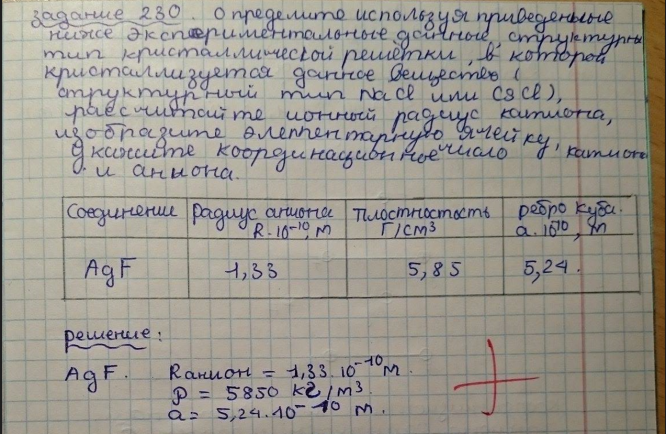 задание 230. Определите используя приведеныые
ниже экспериментальные данные, структурны
тип кристаллической решётки, в которой
кристаллизуется данное вещество (
структурный тип NaCl или CsCl),
рассчитайте ионный радиус катиона,
изобразите элементарную ячейку,
укажите координационное число катион
и аниона.
Соединение Радиус аниона R·10⁻¹⁰, м Плостность Г/см³ ребро куба. a·10¹⁰, м
AgF 1,33 5,85 5,24.
решение:
AgF. Rанион = 1,33·10⁻¹⁰ м.
ρ = 5850 кг/м³.
a = 5,24·10⁻¹⁰ м.